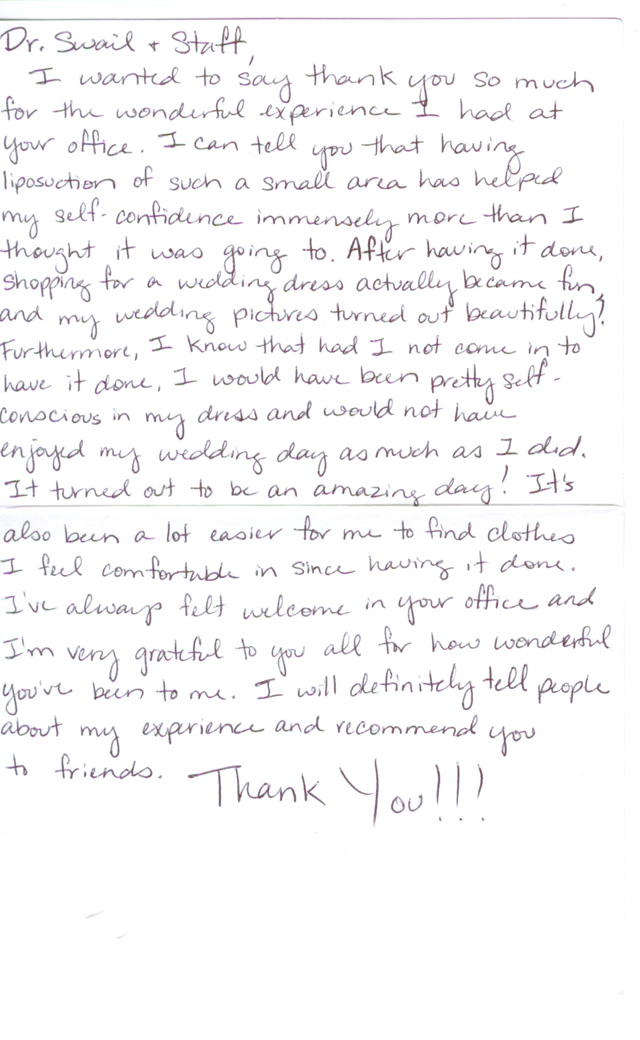 Dr. Swail + Staff,
I wanted to say thank you so much
for the wonderful experience I had at
your office. I can tell you that having
liposuction of such a small area has helped
my self-confidence immensely more than I
thought it was going to. After having it done,
shopping for a wedding dress actually became fun,
and my wedding pictures turned out beautifully!
Furthermore, I know that had I not come in to
have it done, I would have been pretty self-
conscious in my dress and would not have
enjoyed my wedding day as much as I did.
It turned out to be an amazing day! It's
also been a lot easier for me to find clothes
I feel comfortable in since having it done.
I've always felt welcome in your office and
I'm very grateful to you all for how wonderful
you've been to me. I will definitely tell people
about my experience and recommend you
to friends. Thank You!!!